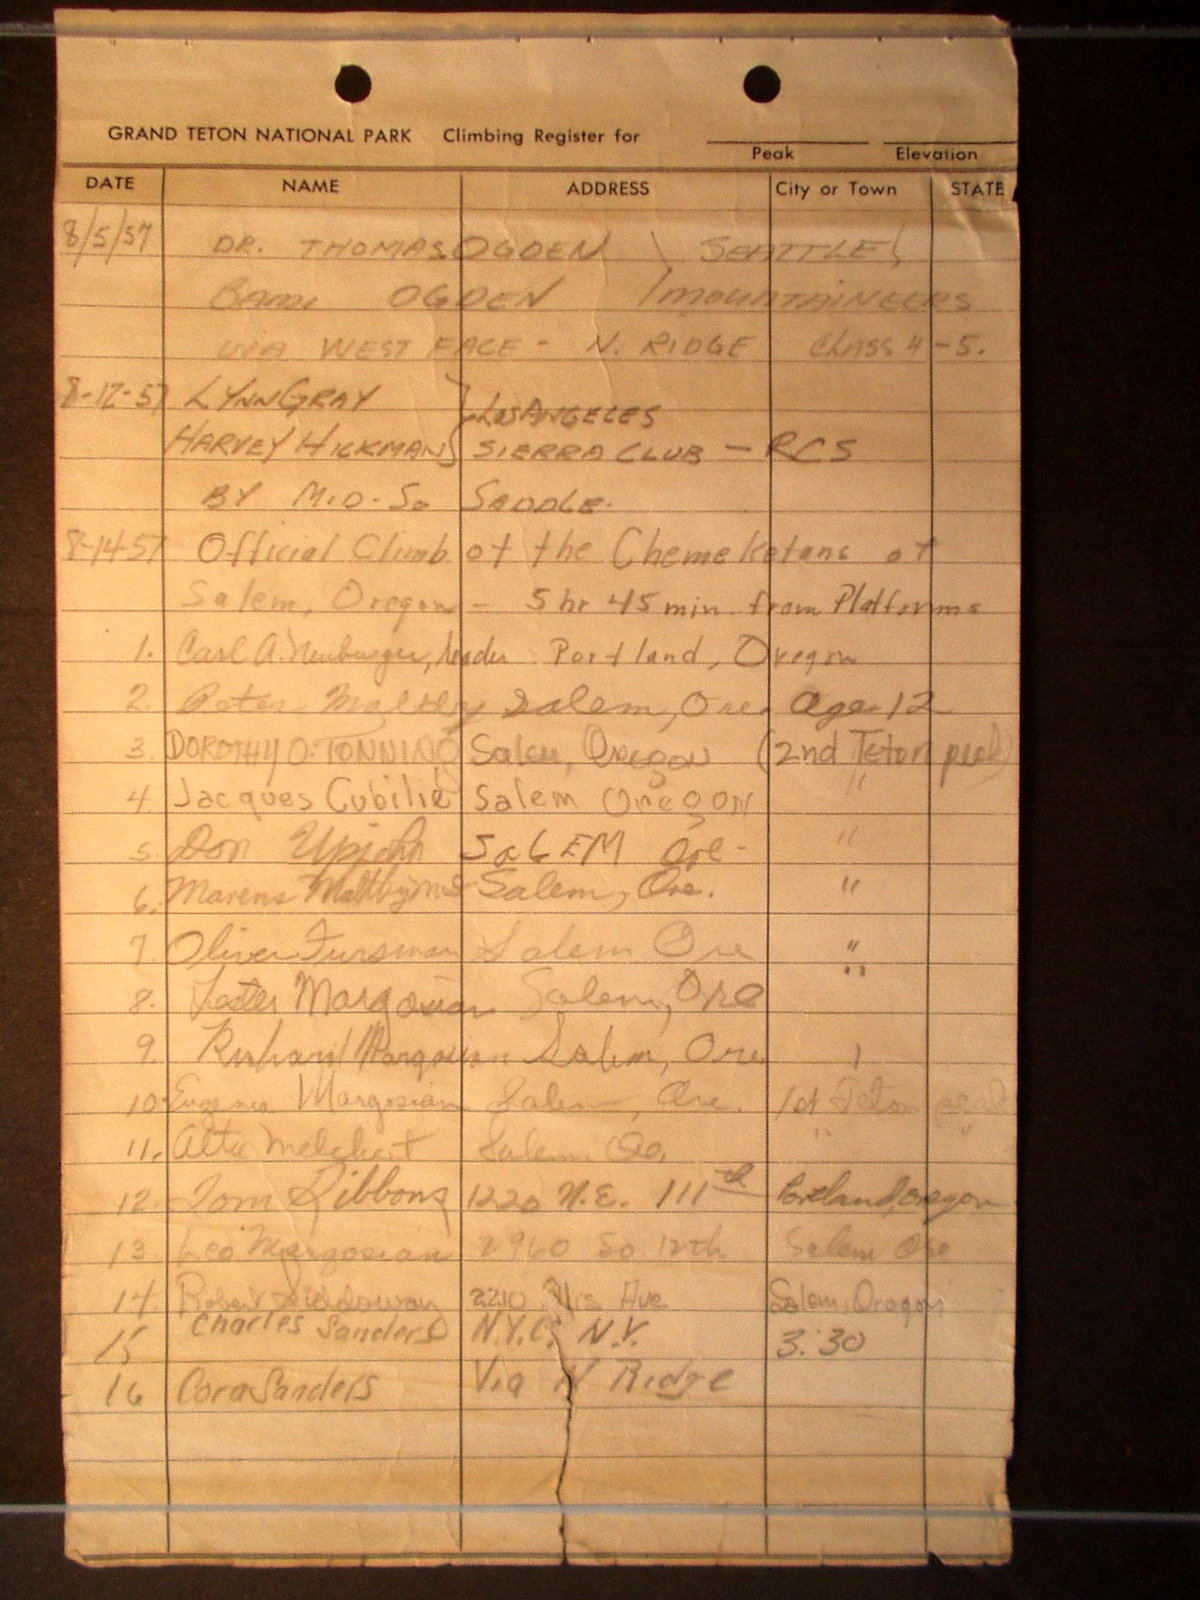 GRAND TETON NATIONAL PARK Climbing Register for
Peak Elevation
DATE NAME ADDRESS City or Town STATE
8/5/57 DR. THOMAS OGDEN SEATTLE
OGDEN MOUNTAINEERS
VIA WEST FACE - N. RIDGE CLASS 4-5.
8-12-57 LYNN GRAY LOS ANGELES
HARVEY HICKMAN SIERRA CLUB - RCS
BY MID-SO SADDLE.
8-14-57 Official Climb of the Chemeketans of
Salem, Oregon - 5 hr 45 min from Platforms
1. Carl A. Neuburger, leader Portland, Oregon
2. Peter Maltby Salem, Ore. age 12
3. DOROTHY O. TONNING Salem, Oregon (2nd Teton peak)
4. Jacques Cubilié Salem OREGON "
5. Don Upjohn SaLEM Ore- "
6. Salem, Ore. "
7. Oliver Fursman Salem Ore "
8. Lester Margosian Salem, Ore "
9. Richard Margosian Salem, Ore
10. Eugenia Margosian Salem, Ore. 1st Teton peak
11. Melchert Salem Ore. " "
12. Tom Ribbons 1220 N.E. 111th Portland, oregon
13. Leo Margosian 2960 So 12th Salem Ore
14. Robert Siddoway 2210 Ave Salem, Oregon
15 Charles Sanders N.Y.C. N.Y. 3:30
16 Cora Sanders Via N Ridge